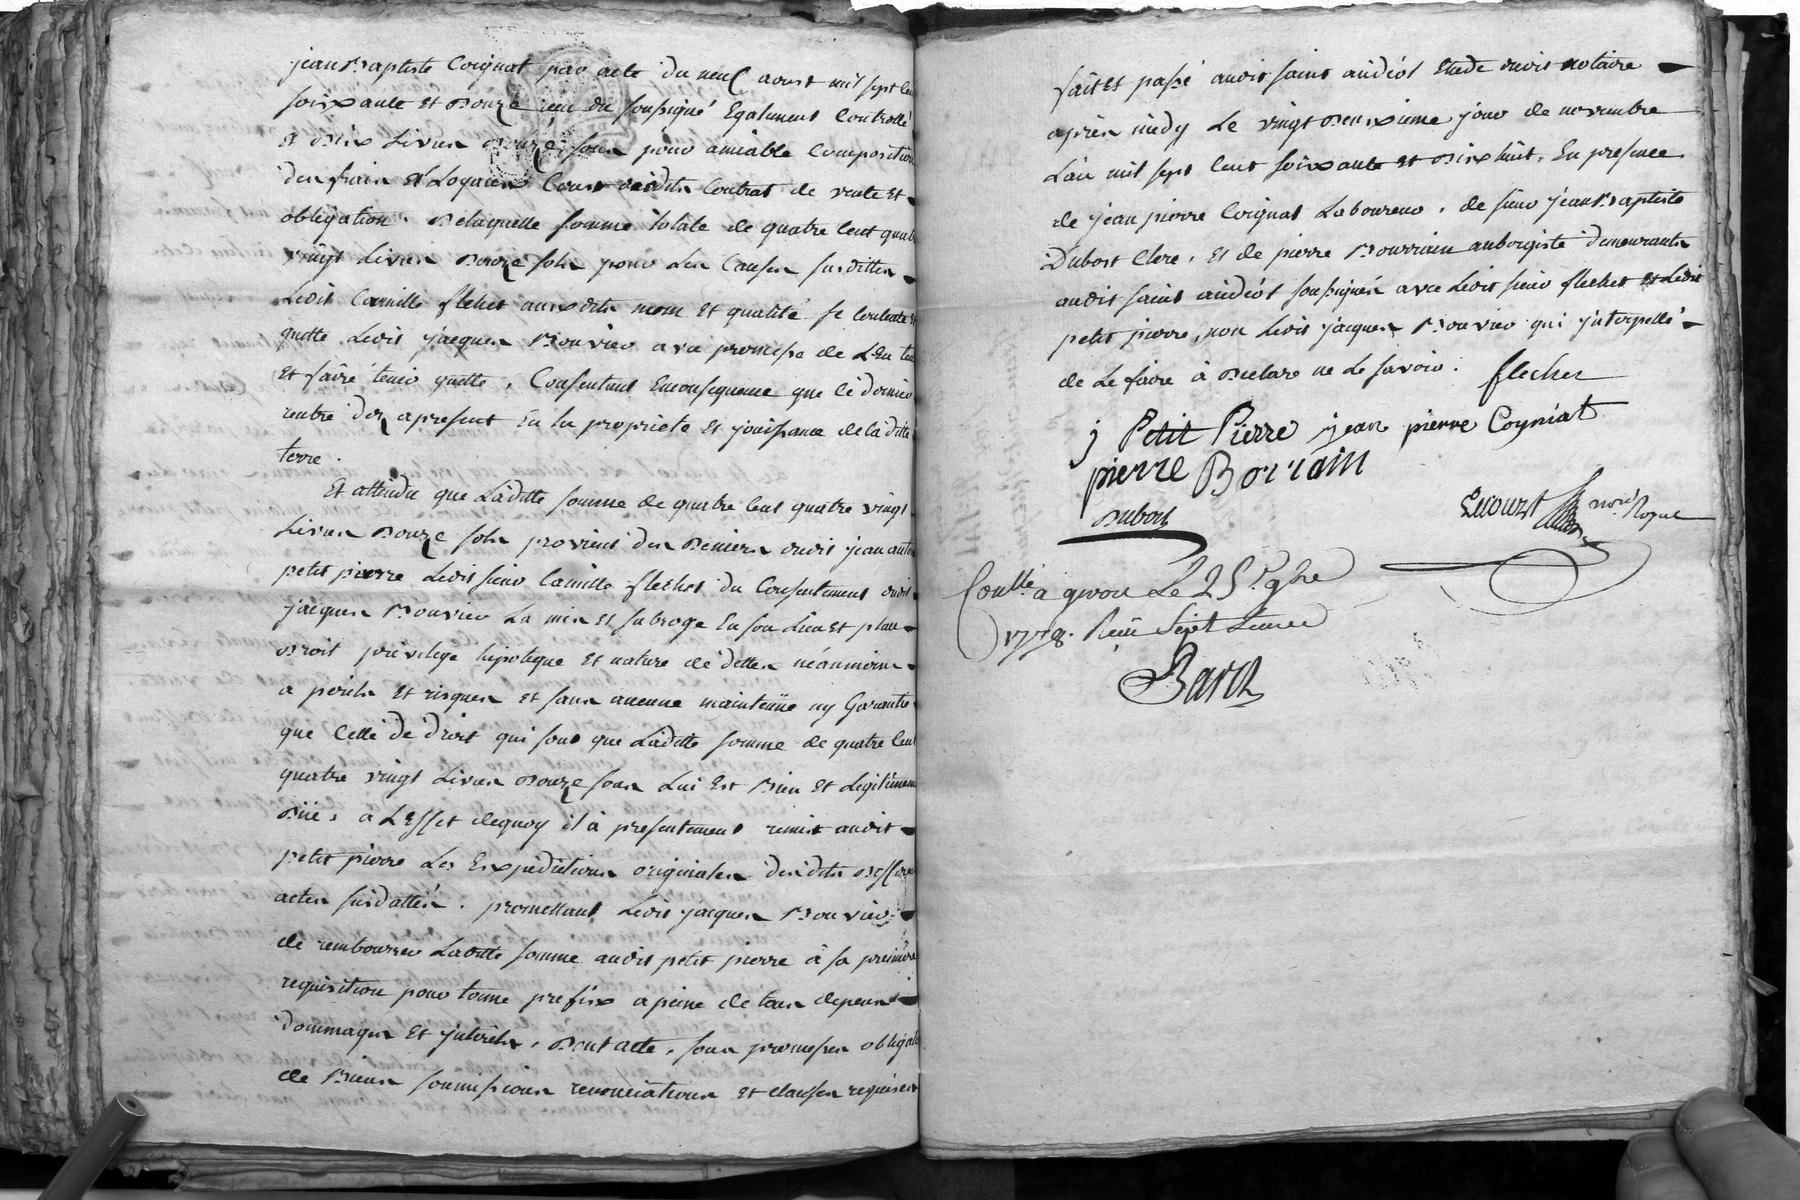 jean Baptiste Coignat par acte du neuf aoust mil sept cen
soixante et Douze reçu du soussigné Egalement Controllé
et Dix Livres Douze sous pour amiable Composition
des frais et Loyaux Couts desdits Contrat de vente et
obligation. De laquelle somme totale de quatre Cent quatre
vingt Livres Douze sols pour Les Causes susdittes
Ledit Camille flechet auxdits nom et qualité se Contente et
quitte Ledit jacques Bouvier avec promesse de L'En ten
Et faire tenir quitte, Consentant Enconsequence que Ce dernier
rentre des apresent En la proprieté et jouissance de laditte
terre.
Et attendu que Laditte somme de quatre Cent quatre vingt
Livres Douze sols provient des Deniers dudit jean anto
petit pierre Ledit sieur Camille flechet du Consentement dudit
jacques Bouvier La mis et subrogé En son Lieu et place
Droit privilege hipoteque et nature de dettes néanmoins
a perils et risques et sans aucune maintenüe ny Garantie
que Celle de droit qui sont que Laditte somme de quatre Cent
quatre vingt Livres Douze sous Lui Est Bien et Legitimement
Düe, a L'Effet dequoy il à presentement remis audit
petit pierre Les Expeditions originales desdits Differents
actes susdattés. promettant Ledit jacques Bouvier
de rembourser Laditte somme audit petit pierre à sa premiere
requisition pour terme prefix a peine de tous depens
dommages et jnterêts. Dont acte, sous promesses obligat
de Biens soumissions renonciations et clauses requises
fait et passé audit saint andéol Etude dudit notaire
aprés midy Le vingt Deuxieme jour de novembre
L'an mil sept Cent soixante et Dix huit, En presence
de jean pierre Coignat Laboureur, de sieur jean Baptiste
Dubost Clerc, et de pierre Bourrian aubergiste demeurants
audit saint andéol soussignés avec Ledit sieur flechet et Ledit
petit pierre, non Ledit jacques Bouvier qui jnterpellé
de Le faire à Declaré ne Le savoir. flechet
j Petit Pierre jean pierre Coyniat
pierre Borrain
Dubost
Lecourt no.re Royal
Conllé a givors Le 25 9bre
1778. Reçu Sept Livres